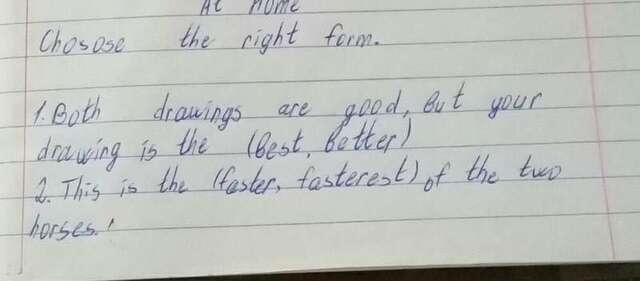 At home
Chosose the right form.
1. Both drawings are good, But your
drawing is the (Best, better)
2. This is the (faster, fasterest) of the two
horses.